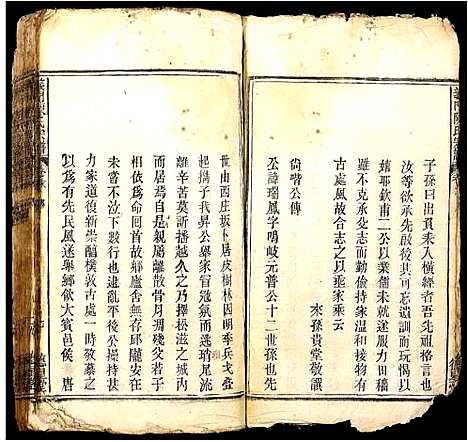 子孫曰出負耒入橫經者吾先祖格言也
汝等欲承先啟後其可忘遺訓而玩愒以
嬉耶欽甫二公以業儒未就遂服力田穡
雖不克承父志而持家溫和接物有
古處風故合志之以垂家乘云
來孫貴堂敬譔
尚喈公傳
公諱瑞鳳字鳴岐元普公十二世孫也先
世由西庄坂卜居皮樹林因明季兵戈疊
起攜子我昇公舉家冒寇氛而逃瑣尾流
離辛苦莫訴播越久之乃擇松滋之大
而居焉自是親屬離散骨月凋殘父若子
相依為命囘首故鄉廬舍邱隴安在
未嘗不泣下數行也逮亂平後公操持甚
力家道復新崇醕樸敦古處一時敬慕之
以為有先民風遂舉鄉飲大賓邑侯 唐